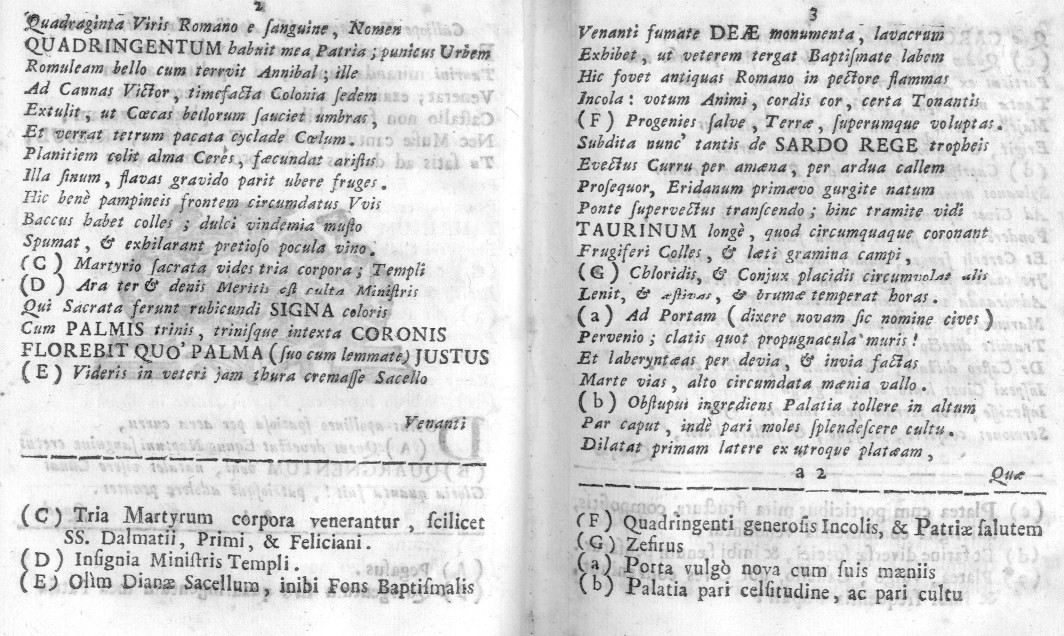 2
Quadraginta Viris Romano e ſanguine, Nomen
QUADRINGENTUM habuit mea Patria; punicus Urbem
Romuleam bello cum terruit Annibal; ille
Ad Cannas Victor, timefacta Colonia ſedem
Extulit, ut Cœcas bellorum ſauciet umbras,
Et verrat tetrum pacata cyclade Cœlum.
Planitiem colit alma Ceres, fæcundat ariſtis
Illa ſinum, flavas gravido parit ubere fruges.
Hic benè pampineis frontem circumdatus Vvis
Baccus habet colles; dulci vindemia muſto
Spumat, & exhilarant pretioſo pocula vino.
(C) Martyrio ſacrata vides tria corpora; Templi
(D) Ara ter & denis Meritis eſt culta Miniſtris
Qui Sacrata ferunt rubicundi SIGNA coloris
Cum PALMIS trinis, triniſque intexta CORONIS
FLOREBIT QUO' PALMA (ſuo cum lemmate) JUSTUS
(E) Videris in veteri jam thura cremaſſe Sacello
Venanti
(C) Tria Martyrum corpora venerantur, ſcilicet
SS. Dalmatii, Primi, & Feliciani.
(D) Inſignia Miniſtris Templi.
(E) Olìm Dianæ Sacellum, inibi Fons Baptiſmalis
3
Venanti fumate DEÆ monumenta, lavacrum
Exhibet, ut veterem tergat Baptiſmate labem
Hic fovet antiquas Romano in pectore flammas
Incola: votum Animi, cordis cor, certa Tonantis
(F) Progenies ſalve, Terræ, ſuperumque voluptas.
Subdita nunc tantis de SARDO REGE tropheis
Evectus Curru per amæna, per ardua callem
Proſequor, Eridanum primævo gurgite natum
Ponte ſupervectus tranſcendo; hinc tramite vidi
TAURINUM longè, quod circumquaque coronant
Frugiferi Colles, & læti gramina campi,
(G) Chloridis, & Conjux placidis circumvolat alis
Lenit, & æſtivas, & brumæ temperat horas.
(a) Ad Portam (dixere novam ſic nomine cives)
Pervenio; clatis quot propugnacula muris!
Et laberyntæas per devia, & invia factas
Marte vias, alto circumdata mænia vallo.
(b) Obſtupui ingrediens Palatia tollere in altum
Par caput, indè pari moles ſplendeſcere cultu.
Dilatat primam latere ex utroque platæam,
a 2 Quæ
(F) Quadringenti generoſis Incolis, & Patriæ ſalutem
(G) Zefirus
(a) Porta vulgò nova cum ſuis mæniis
(b) Palatia pari celſitudine, ac pari cultu